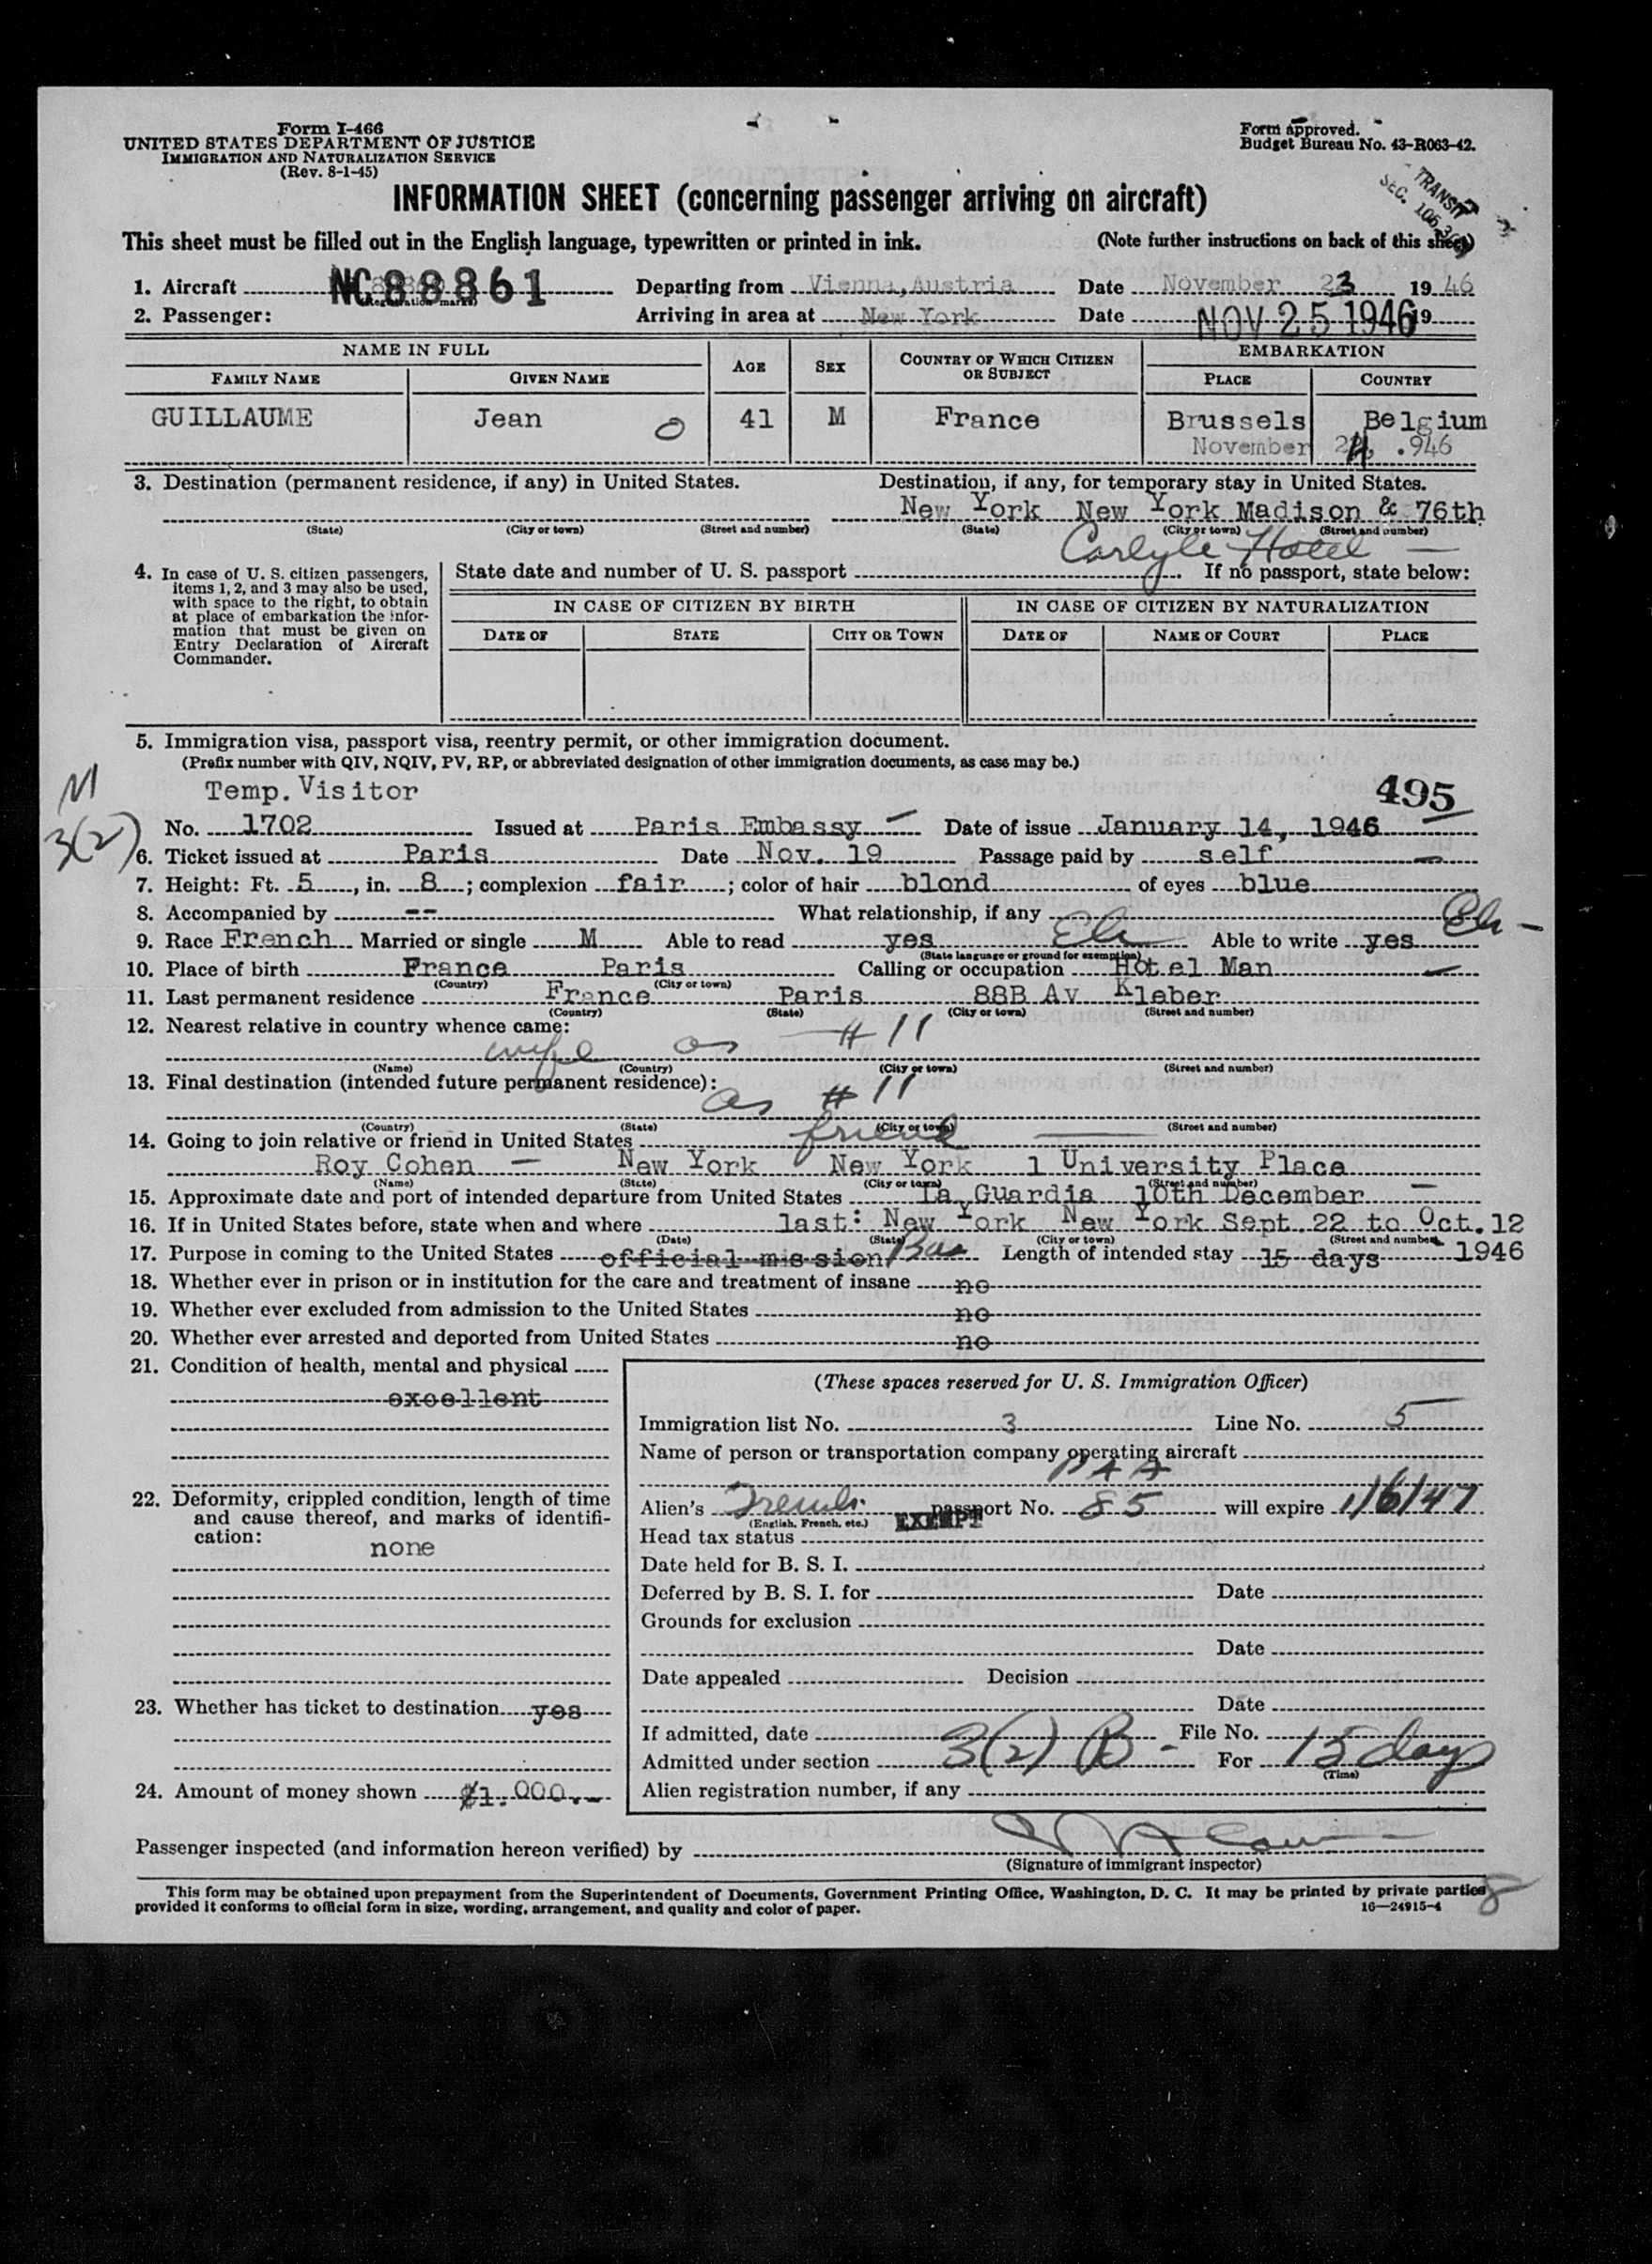 Form I-466
UNITED STATES DEPARTMENT OF JUSTICE
IMMIGRATION AND NATURALIZATION SERVICE
(Rev. 8-1-45)
Form approved.
Budget Bureau No. 43-R063-42.
TRANSIT
SEC. 106.3
INFORMATION SHEET (concerning passenger arriving on aircraft)
This sheet must be filled out in the English language, typewritten or printed in ink. (Note further instructions on back of this sheet)
1. Aircraft NC88861 Departing from Vienna, Austria Date November 23 19 46
(Registration marks)
2. Passenger: Arriving in area at New York Date NOV 25 1946 19
NAME IN FULL AGE SEX COUNTRY OF WHICH CITIZEN OR SUBJECT EMBARKATION
FAMILY NAME GIVEN NAME PLACE COUNTRY
GUILLAUME Jean 0 41 M France Brussels Belgium
November 24, .946
3. Destination (permanent residence, if any) in United States. Destination, if any, for temporary stay in United States.
New York New York Madison & 76th
(State) (City or town) (Street and number) (State) (City or town) (Street and number)
Carlyle Hotel —
4. In case of U. S. citizen passengers, items 1, 2, and 3 may also be used, with space to the right, to obtain at place of embarkation the infor-
mation that must be given on Entry Declaration of Aircraft Commander.
State date and number of U. S. passport . If no passport, state below:
IN CASE OF CITIZEN BY BIRTH IN CASE OF CITIZEN BY NATURALIZATION
DATE OF STATE CITY OR TOWN DATE OF NAME OF COURT PLACE
5. Immigration visa, passport visa, reentry permit, or other immigration document.
(Prefix number with QIV, NQIV, PV, RP, or abbreviated designation of other immigration documents, as case may be.)
M
3(2)
Temp. Visitor 495
No. 1702 Issued at Paris Embassy Date of issue January 14, 1946
6. Ticket issued at Paris Date Nov. 19 Passage paid by self
7. Height: Ft. 5, in. 8; complexion fair; color of hair blond of eyes blue
8. Accompanied by -- What relationship, if any
9. Race French Married or single M Able to read yes Able to write yes
(State language or ground for exemption)
10. Place of birth France Paris Calling or occupation Hotel Man
(Country) (City or town)
11. Last permanent residence France Paris 88B Av Kleber
(Country) (State) (City or town) (Street and number)
12. Nearest relative in country whence came:
wife as # 11
(Name) (Country) (City or town) (Street and number)
13. Final destination (intended future permanent residence):
as # 11
(Country) (State) (City or town) (Street and number)
14. Going to join relative or friend in United States friend
Roy Cohen — New York New York 1 University Place
(Name) (State) (City or town) (Street and number)
15. Approximate date and port of intended departure from United States La Guardia 10th December
16. If in United States before, state when and where last: New York New York Sept. 22 to Oct. 12
(Date) (State) (City or town) (Street and number)
17. Purpose in coming to the United States official mission Bus Length of intended stay 15 days 1946
18. Whether ever in prison or in institution for the care and treatment of insane no
19. Whether ever excluded from admission to the United States no
20. Whether ever arrested and deported from United States no
21. Condition of health, mental and physical
excellent
22. Deformity, crippled condition, length of time and cause thereof, and marks of identifi-
cation:
none
23. Whether has ticket to destination yes
24. Amount of money shown $1.000.--
(These spaces reserved for U. S. Immigration Officer)
Immigration list No. 3 Line No. 5
Name of person or transportation company operating aircraft
PAA
Alien's French passport No. 85 will expire 1/6/47
(English, French, etc.)
EXEMPT
Head tax status
Date held for B. S. I.
Deferred by B. S. I. for Date
Grounds for exclusion
Date
Date appealed Decision
Date
If admitted, date File No.
Admitted under section 3(2) B - For 15 days
(Time)
Alien registration number, if any
Passenger inspected (and information hereon verified) by
(Signature of immigrant inspector)
This form may be obtained upon prepayment from the Superintendent of Documents, Government Printing Office, Washington, D. C. It may be printed by private parties
provided it conforms to official form in size, wording, arrangement, and quality and color of paper. 16—24915-4
8